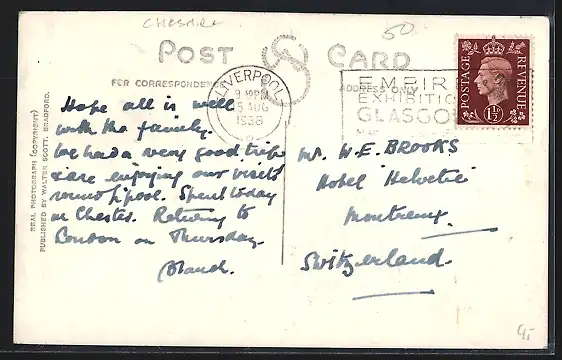 CHESHIRE
50
POST CARD
FOR CORRESPONDENCE
ADDRESS ONLY
LIVERPOOL
5 AUG
1938
EMPIRE
EXHIBITION
GLASGOW
POSTAGE
REVENUE
1½D
Hope all is well
with the family.
We had a very good trip
& are enjoying our visit
round L'pool. Spent today
in Chester. Returning to
London on Thursday.
Blanch.
Mr. W. E. BROOKS
Hotel Helvetie
Montreux.
Switzerland.
REAL PHOTOGRAPH (COPYRIGHT)
PUBLISHED BY WALTER SCOTT, BRADFORD.
9,-